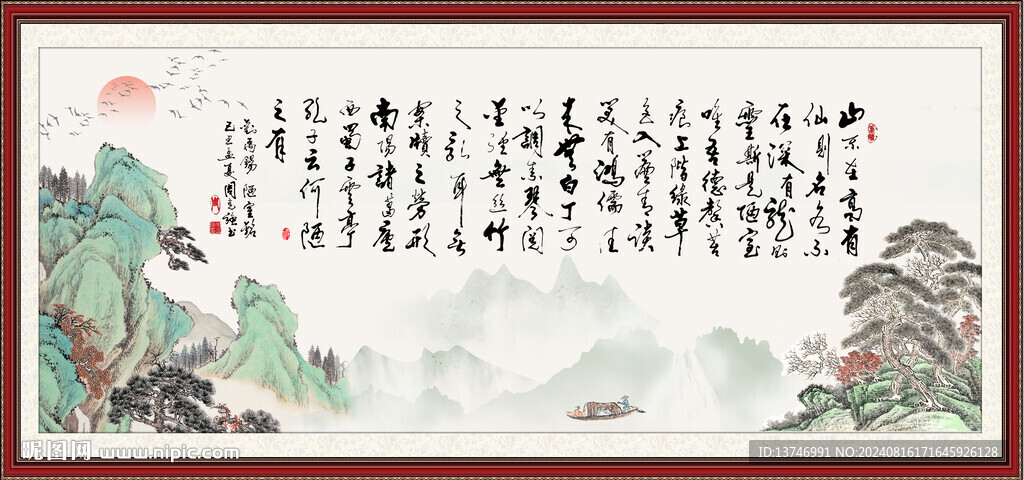 山不在高有
仙則名水不
在深有龍則
靈斯是陋室
唯吾德馨苔
痕上階綠草
色入簾青談
笑有鴻儒往
来無白丁可
以調素琴閱
金經無絲竹
之乱耳無
案牘之勞形
南陽諸葛廬
西蜀子雲亭
孔子云何陋
之有
劉禹錫 陋室銘
己丑孟夏周書
昵图网 www.nipic.com
ID:13746991 NO:20240816171645926128